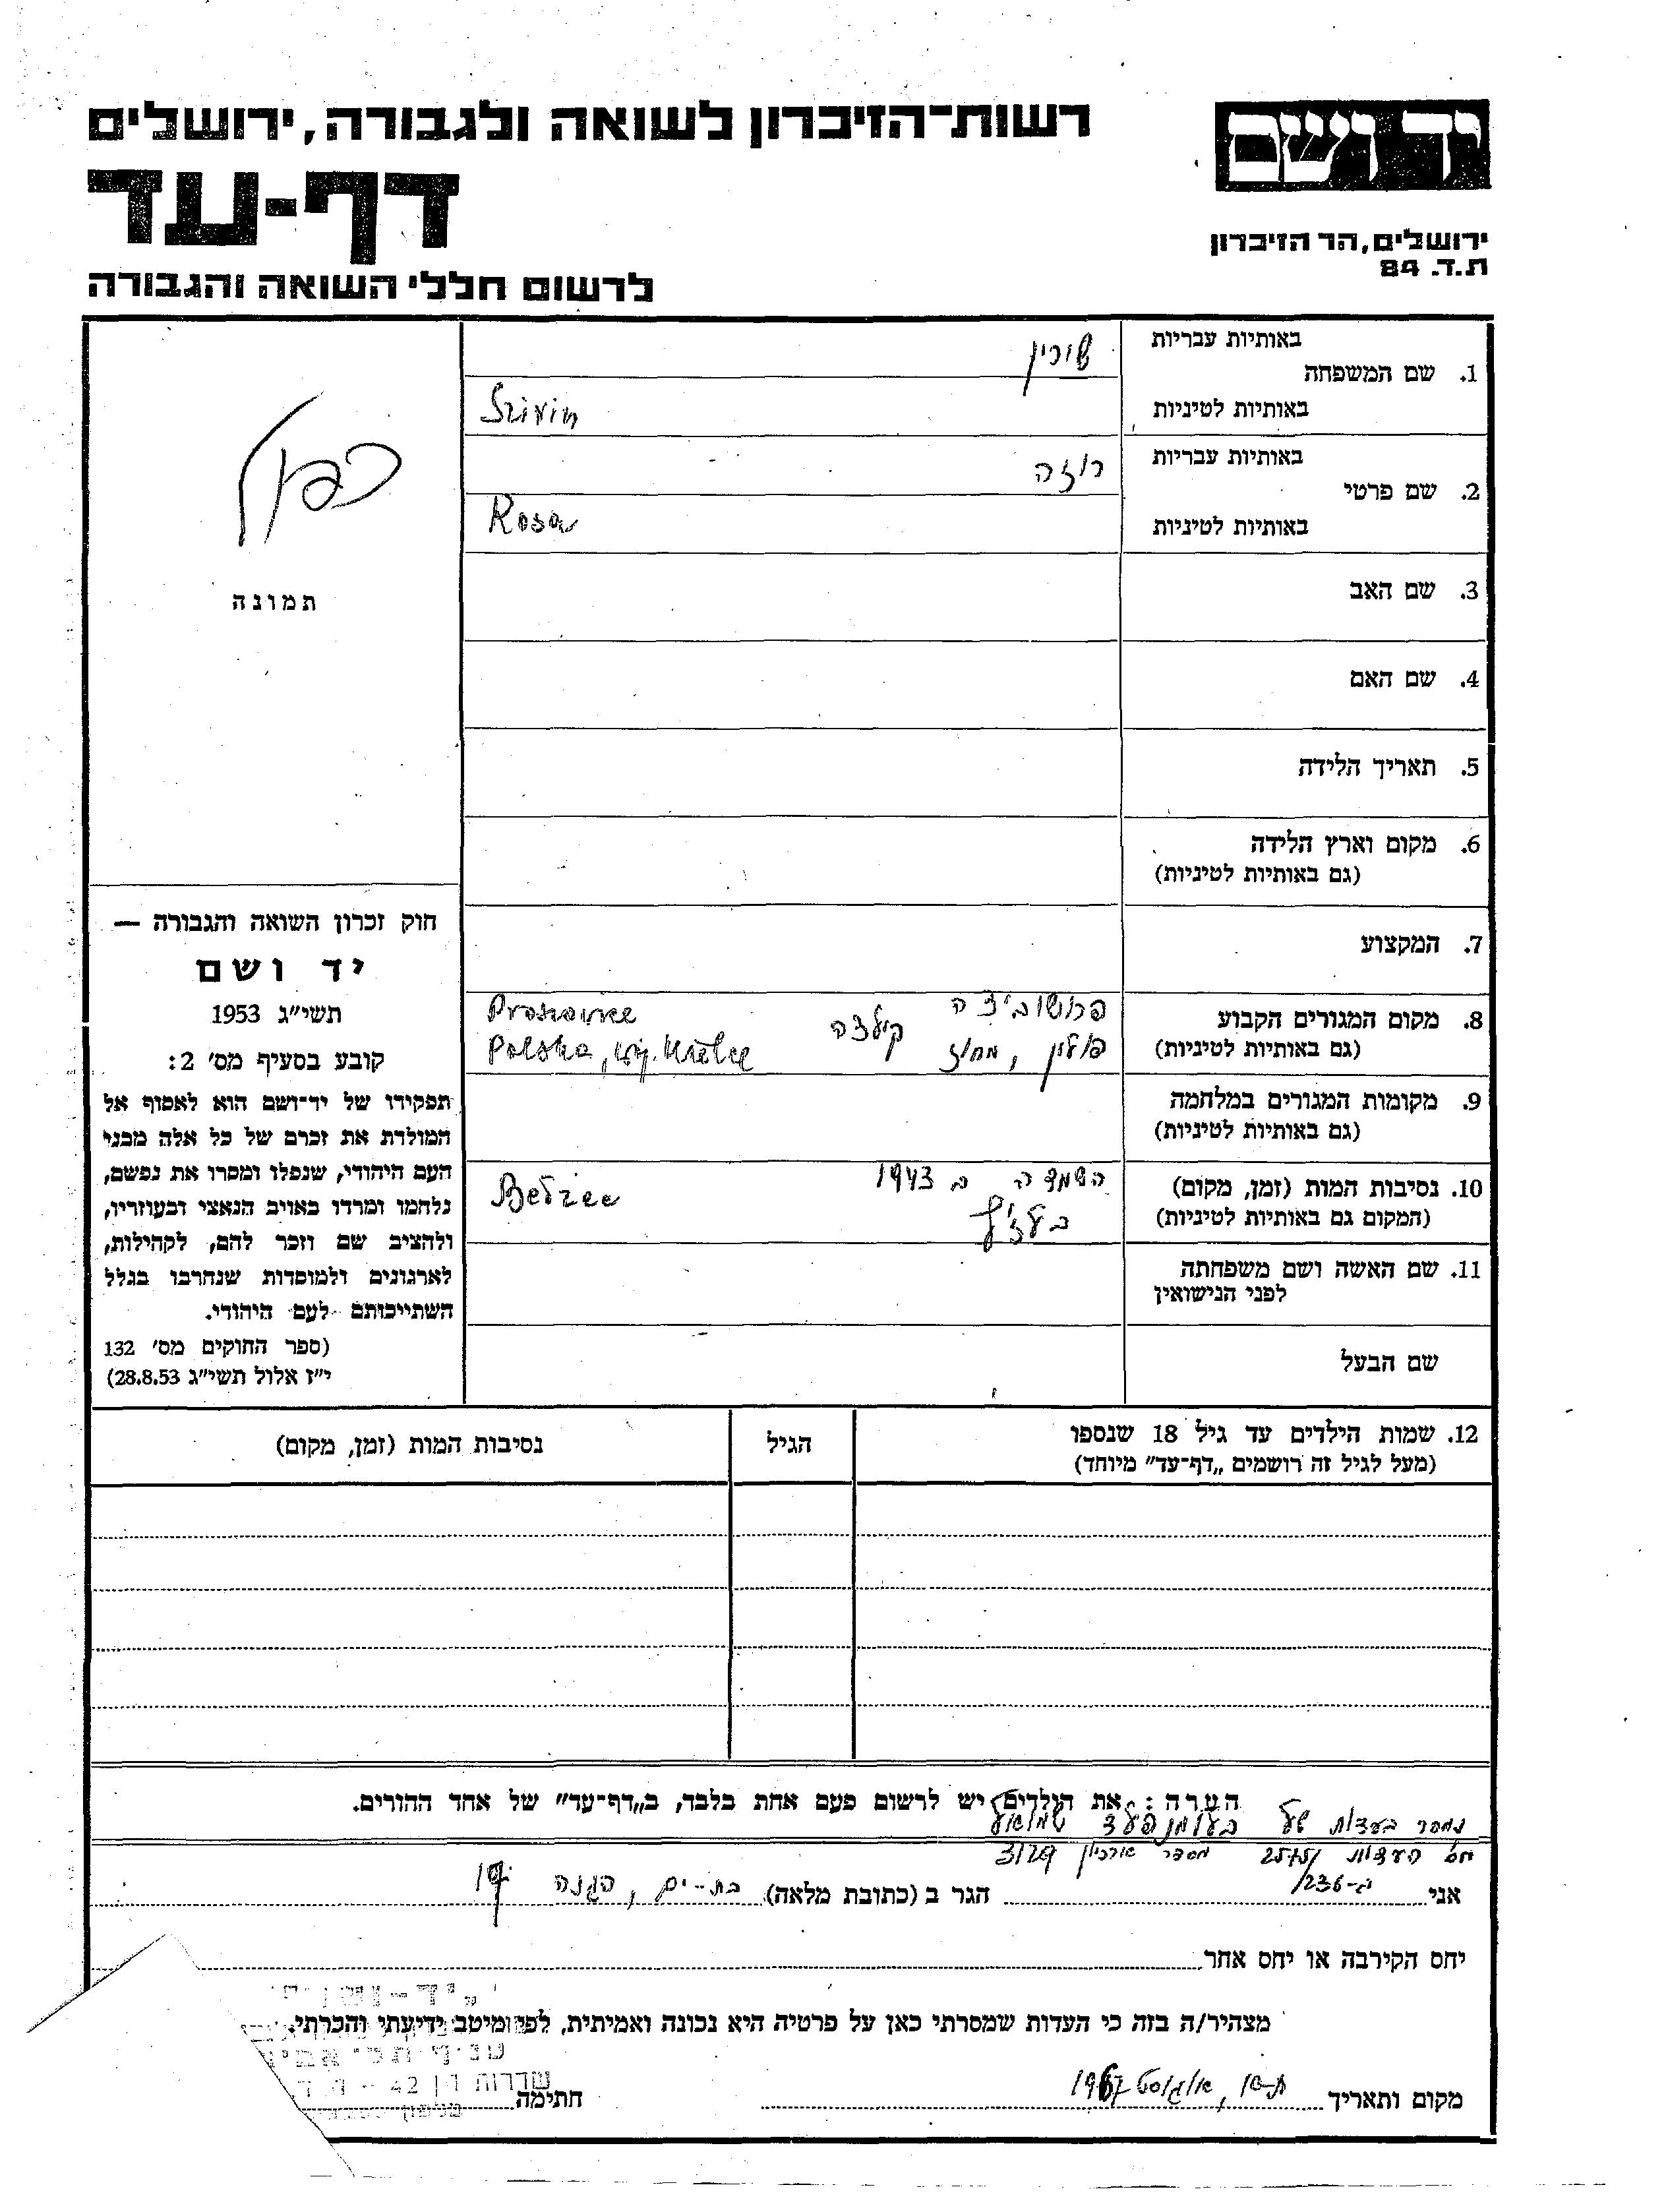 רשות־הזיכרון לשואה ולגבורה, ירושלים
יד ושם
דף-עד
ירושלים, הר הזיכרון
ת.ד. 84
לרשום חללי השואה והגבורה
באותיות עבריות
1. שם המשפחה
באותיות לטיניות
Szirin
2. שם פרטי
באותיות עבריות
רוזה
באותיות לטיניות
Rosa
3. שם האב
4. שם האם
5. תאריך הלידה
6. מקום וארץ הלידה
(גם באותיות לטיניות)
7. המקצוע
8. מקום המגורים הקבוע
(גם באותיות לטיניות)
פולין, מחוז קילצה
Polska, woj. Kielce
9. מקומות המגורים במלחמה
(גם באותיות לטיניות)
10. נסיבות המות (זמן, מקום)
(המקום גם באותיות לטיניות)
השמדה ב 1943
Bełżec
11. שם האשה ושם משפחתה
לפני הנישואין
שם הבעל
תמונה
חוק זכרון השואה והגבורה —
יד ושם
תשי"ג 1953
קובע בסעיף מס' 2:
תפקידו של יד־ושם הוא לאסוף אל
המולדת את זכרם של כל אלה מבני
העם היהודי, שנפלו ומסרו את נפשם,
נלחמו ומרדו באויב הנאצי ובעוזריו,
ולהציב שם וזכר להם, לקהילות,
לארגונים ולמוסדות שנחרבו בגלל
השתייכותם לעם היהודי.
(ספר החוקים מס' 132
י"ז אלול תשי"ג 28.8.53)
12. שמות הילדים עד גיל 18 שנספו
(מעל לגיל זה רושמים „דף־עד" מיוחד)
הגיל
נסיבות המות (זמן, מקום)
הערה: את הילדים יש לרשום פעם אחת בלבד, ב„דף־עד" של אחד ההורים.
נמסר בעדות של
מס העדות מספר ארכיון
אני הגר ב (כתובת מלאה) בת-ים, הגנה
יחס הקירבה או יחס אחר
מצהיר/ה בזה כי העדות שמסרתי כאן על פרטיה היא נכונה ואמיתית, לפי מיטב ידיעתי והכרתי.
מקום ותאריך
חתימה